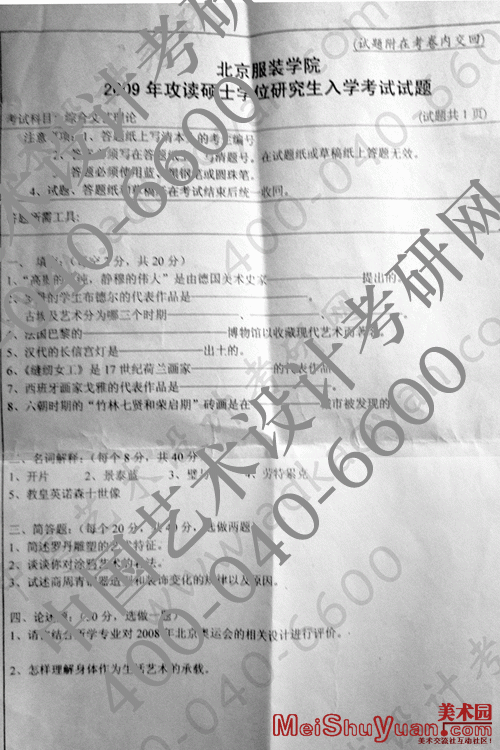 (试题附在考卷内交回)
北京服装学院
2009年攻读硕士学位研究生入学考试试题
考试科目: 综合文 理论
(试题共1页)
注意 项: 1、答题纸上写清本 的考生编号
2、答 必须写在答题纸 写清题号, 在试题纸或草稿纸上答题无效。
3、 答题必须使用蓝、黑钢笔或圆珠笔。
4、试题、答题纸 草稿 在考试结束后统一收回。
答题所需工具:
一、填 ( 分, 共20分)
1、“高贵的 纯, 静穆的伟大”是由德国美术史家 提出的。
2、 的学生布德尔的代表作品是 。
古埃及艺术分为哪三个时期 、 、
4、法国巴黎的 博物馆以收藏现代艺术而著
5、汉代的长信宫灯是 出土的。
6、《缝纫女工》是17世纪荷兰画家 的代表作品
7、西班牙画家戈雅的代表作品是
8、六朝时期的“竹林七贤和荣启期”砖画是在 城市被发现的
二、名词解释: (每个8分, 共40分)
1、开片 2、景泰蓝 3、璧与 4、劳特累克
5、教皇英诺森十世像
三、简答题: (每个20分, 共40分, 选做两题)
1、简述罗丹雕塑的艺术特征。
2、谈谈你对涂鸦艺术的看法。
3、试述商周青铜器造型和装饰变化的规律以及原因。
四、论述 ( 0分, 选做一题)
1、请 结合所学专业对2008年北京奥运会的相关设计进行评价。
2、怎样理解身体作为生活艺术的承载。
中国艺术设计考研网
400-040-6600
美术园
MeiShuYuan.com
美术交流社互动社区!